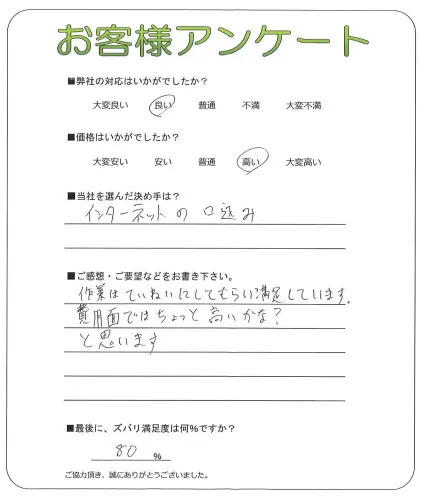 お客様アンケート
■弊社の対応はいかがでしたか?
大変良い 良い 普通 不満 大変不満
■価格はいかがでしたか?
大変安い 安い 普通 高い 大変高い
■当社を選んだ決め手は?
インターネットの口込み
■ご感想・ご要望などをお書き下さい。
作業はていねいにしてもらい満足しています。
費用面ではちょっと高いかな?
と思います
■最後に、ズバリ満足度は何%ですか?
80 %
ご協力頂き、誠にありがとうございました。